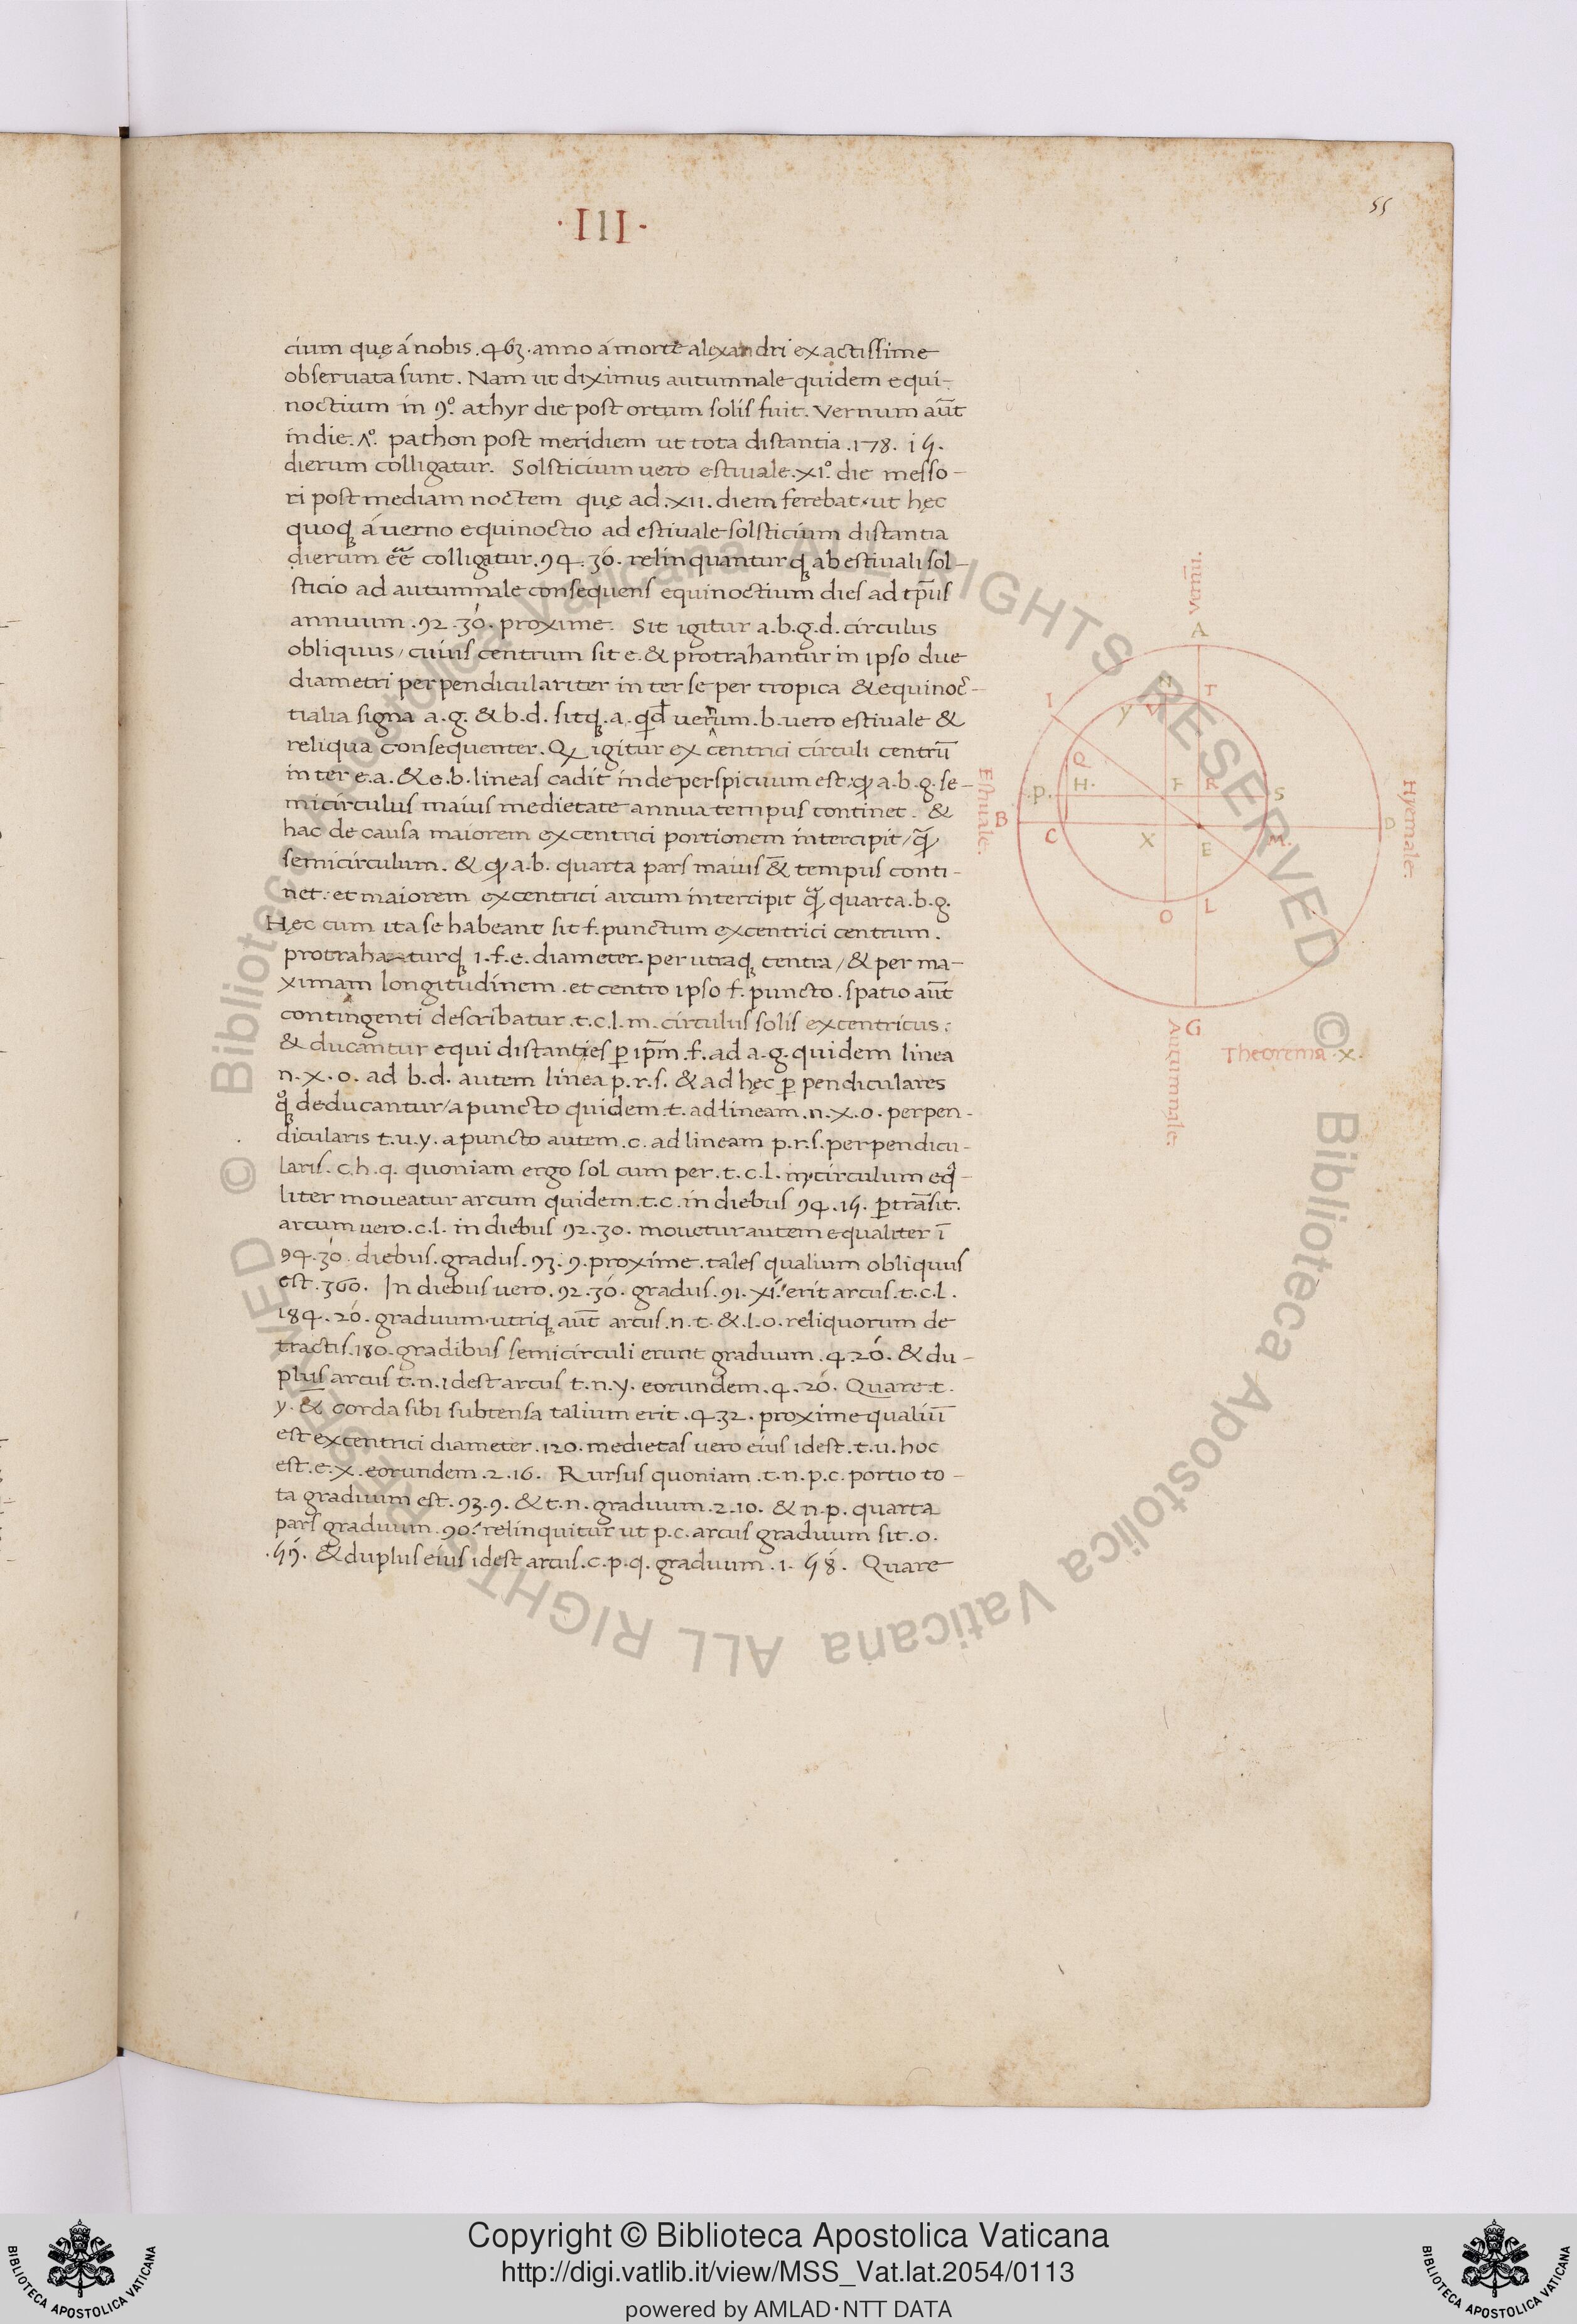 ·III·
55
cium quę á nobis .463. anno á morte alexandri exactissime
obseruata sunt. Nam ut diximus autumnale quidem equi-
noctium in 9º. athyr die post ortum solis fuit. Vernum aūt
in die. 7º. pathon post meridiem ut tota distantia .178. 15.
dierum colligatur. Solsticium uero estiuale .xiº. die messo-
ri post mediam noctem quę ad .xii. diem ferebat ut hęc
quoqꝫ á uerno equinoctio ad estiuale solsticium distantia
dierum eē colligatur .94. 30. relinquanturqꝫ ab estiuali sol-
sticio ad autumnale consequens equinoctium dies ad tp̄us
annuum .92. 30. proxime. Sit igitur a.b.g.d. circulus
obliquus, cuius centrum sit e. & protrahantur in ipso due
diametri perpendiculariter inter se per tropica & equinoc-
tialia signa a.g. & b.d. sitqꝫ .a. qd̄ uernum .b. uero estiuale &
reliqua consequenter. Qꝫ igitur excentrici circuli centrū
inter e.a. & e.b. lineas cadit inde perspicuum est: qꝫ a.b.g. se-
micirculus maius medietate annua tempus continet. &
hac de causa maiorem excentrici portionem intercipit, qꝫ̄
semicirculum. & qꝫ a.b. quarta pars maius & tempus conti-
net: et maiorem excentrici arcum intercipit qꝫ̄ quarta .b.g.
Hęc cum ita se habeant sit f. punctum excentrici centrum.
protrahanturqꝫ i.f.e. diameter per utraqꝫ centra, & per ma-
ximam longitudinem. et centro ipso f. puncto. spatio aūt
contingenti describatur .t.c.l.m. circulus solis excentricus:
& ducantur equi distantes ꝑ ip̄m .f. ad a.g. quidem linea
n.x.o. ad b.d. autem linea p.r.s. & ad hęc ꝑpendiculares
qꝫ deducantur, a puncto quidem .t. ad lineam .n.x.o. perpen-
dicularis t.u.y. a puncto autem .c. ad lineam p.r.s. perpendicu-
laris. c.h.q. quoniam ergo sol cum per .t.c.l.m. circulum eq̄-
liter moueatur arcum quidem .t.c. in diebus 94. 15. ꝑtrāsit.
arcum uero .c.l. in diebus 92. 30. mouetur autem equaliter ī
94. 30. diebus. gradus. 93. 9. proxime. tales qualium obliquus
est .360. In diebus uero .92. 30. gradus .91. xi. erit arcus .t.c.l.
184. 20. graduum. utriqꝫ aūt arcus .n.t. & .l.o. reliquorum de
tractis .180. gradibus semicirculi erunt graduum .4. 20. & du-
plus arcus t.n. idest arcus t.n.y. eorundem .4. 20. Quare t.
y. & corda sibi subtensa talium erit .4 32. proxime qualiū
est excentrici diameter .120. medietas uero eius idest .t.u. hoc
est .e.x. eorundem .2. 16. Rursus quoniam .t.n.p.c. portio to-
ta graduum est .93. 9. & t.n. graduum .2. 10. & n.p. quarta
pars graduum .90. relinquitur ut p.c. arcus graduum sit .0.
.59. & duplus eius idest arcus .c.p.q. graduum .1. 58. Quare
vernū.
A
I
N
T
Y
V
Q
P.
H.
F
R
S
Estiuale.
B
C
X
E
M
D
Hyemale.
O
L
G
Autumnale.
Theorema .X.
© Biblioteca Apostolica Vaticana ALL RIGHTS RESERVED
© Biblioteca Apostolica Vaticana ALL RIGHTS RESERVED
Copyright © Biblioteca Apostolica Vaticana
http://digi.vatlib.it/view/MSS_Vat.lat.2054/0113
powered by AMLAD·NTT DATA
BIBLIOTECA APOSTOLICA VATICANA
BIBLIOTECA APOSTOLICA VATICANA